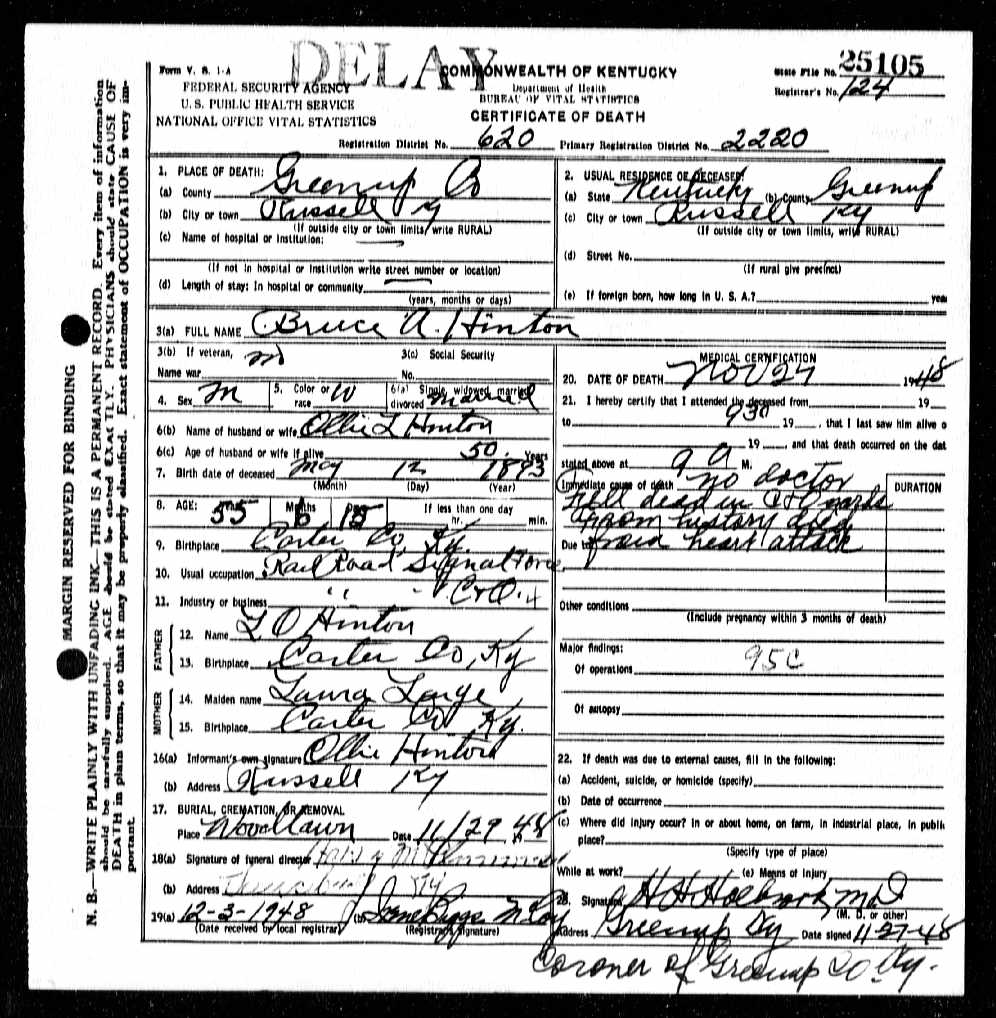 DELAY
Form V. S. 1-A
COMMONWEALTH OF KENTUCKY
State File No. 25105
FEDERAL SECURITY AGENCY
Department of Health
Registrar's No. 124
U. S. PUBLIC HEALTH SERVICE
BUREAU OF VITAL STATISTICS
NATIONAL OFFICE VITAL STATISTICS
CERTIFICATE OF DEATH
Registration District No. 620 Primary Registration District No. 2220
1. PLACE OF DEATH:
(a) County Greenup Co
(b) City or town Russell Ky
(If outside city or town limits, write RURAL)
(c) Name of hospital or institution:
(If not in hospital or institution write street number or location)
(d) Length of stay: In hospital or community
(years, months or days)
2. USUAL RESIDENCE OF DECEASED:
(a) State Kentucky (b) County Greenup
(c) City or town Russell Ky
(If outside city or town limits, write RURAL)
(d) Street No.
(If rural give precinct)
(e) If foreign born, how long in U. S. A.? yea
3(a) FULL NAME Bruce A. Hinton
3(b) If veteran, no
Name war
3(c) Social Security
No.
4. Sex M
5. Color or race W
6(a) Single, widowed, married, divorced married
6(b) Name of husband or wife Ollie L Hinton
6(c) Age of husband or wife if alive 50 Years
7. Birth date of deceased May 12 1893
(Month) (Day) (Year)
8. AGE: Years 55 Months 6 Days 15 If less than one day
hr. min.
9. Birthplace Carter Co, Ky.
10. Usual occupation Rail Road Signal Force
11. Industry or business " " C & O.
FATHER
12. Name L O Hinton
13. Birthplace Carter Co, Ky
MOTHER
14. Maiden name Laura Large
15. Birthplace Carter Co Ky.
16(a) Informant's own signature Ollie Hinton
(b) Address Russell Ky
17. BURIAL, CREMATION, OR REMOVAL
Place Woodlawn Date 11/29 48
18(a) Signature of funeral director
(b) Address Ky
19(a) 12-3-1948 (b) Irene Biggs McCoy
(Date received by local registrar) (Registrar's signature)
MEDICAL CERTIFICATION
20. DATE OF DEATH Nov 27 1948
21. I hereby certify that I attended the deceased from 19
to 930 19 , that I last saw him alive o
19 , and that death occurred on the dat
stated above at 9 a M.
Immediate cause of death no doctor
DURATION
fell dead in C & O yards
from history died
Due to from heart attack
Other conditions
(Include pregnancy within 3 months of death)
Major findings:
Of operations 95c
Of autopsy
22. If death was due to external causes, fill in the following:
(a) Accident, suicide, or homicide (specify)
(b) Date of occurrence
(c) Where did injury occur? In or about home, on farm, in industrial place, in publi
place?
(Specify type of place)
While at work? (e) Means of Injury
23. Signature H H Holbrook MD
(M. D. or other)
Address Greenup Ky Date signed 11-27-48
Coroner of Greenup Co. Ky.
MARGIN RESERVED FOR BINDING
N. B.—WRITE PLAINLY WITH UNFADING INK—THIS IS A PERMANENT RECORD. Every item of information
should be carefully supplied. AGE should be stated EXACTLY. PHYSICIANS should state CAUSE OF
DEATH in plain terms, so that it may be properly classified. Exact statement of OCCUPATION is very im-
portant.